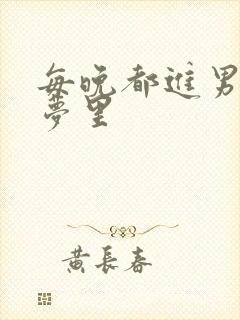 每晚都进男
夢里
黄長春